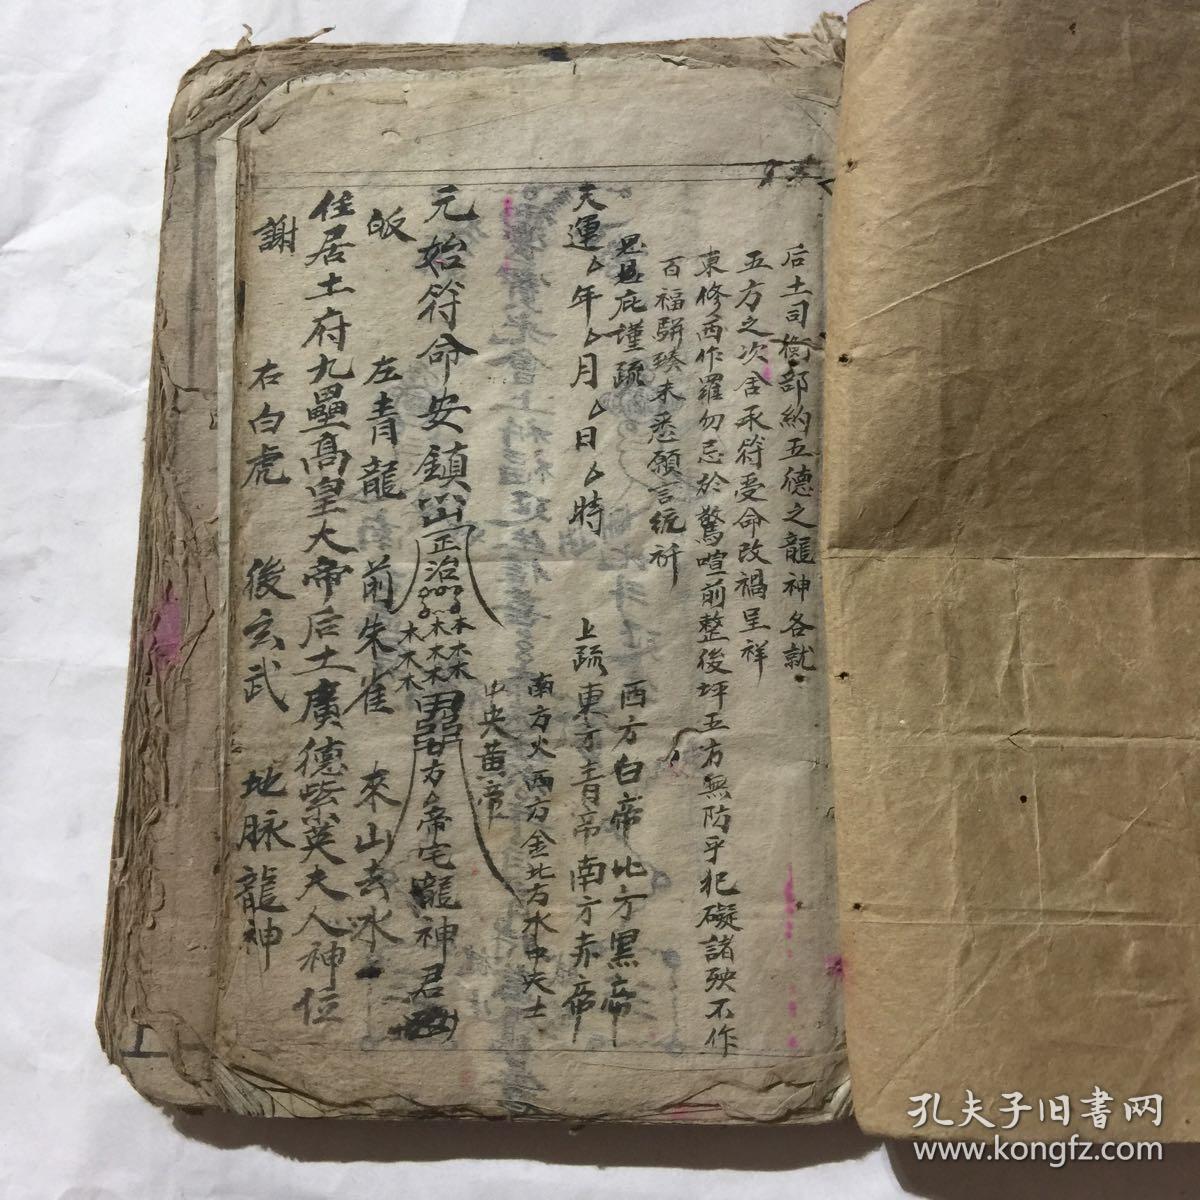 后土司衡部約五德之龍神各就
五方之次舍承符受命改禍呈祥
東修西作罹勿忌於驚喧前整後坪五方無防乎犯礙諸殃不作
百福駢臻未悉願言統祈
恩庇謹疏
天運年月日時
上疏
西方白帝北方黑帝
東方青帝南方赤帝
南方火西方金北方水中央土
中央黃帝
元始符命安鎮
正治
木木木木木木木木木
方帝宅龍神君
皈
左青龍 前朱雀 來山去水
住居土府九壘高皇大帝后土廣德紫英夫人神位
謝
右白虎 後玄武 地脉龍神
孔夫子旧書网
www.kongfz.com